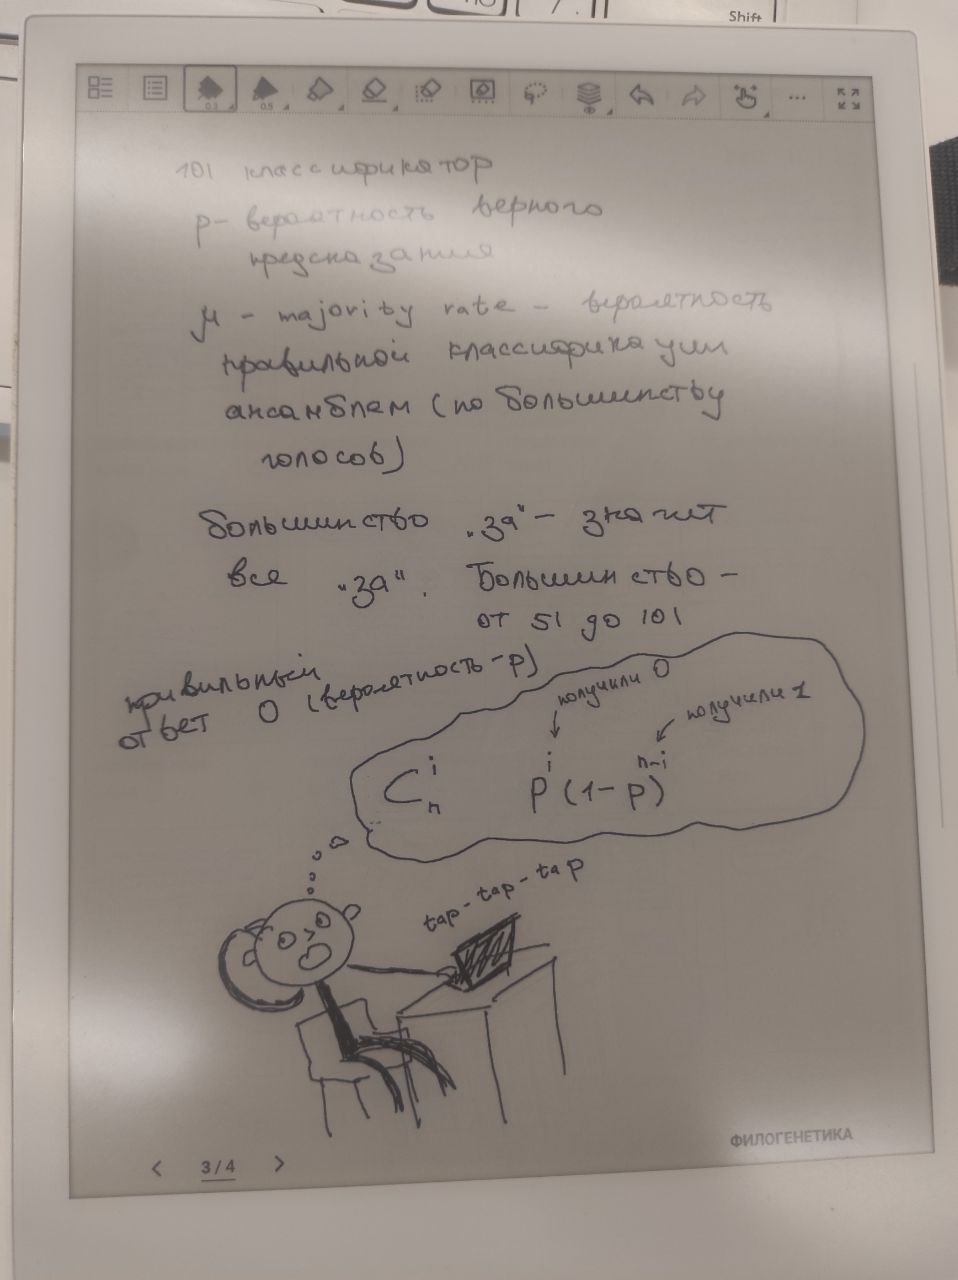 Shift
0.3
0.5
101 классификатор
p - вероятность верного
предсказания
μ - majority rate - вероятность
правильной классификации
ансамблем (по большинству
голосов)
большинство „за“ - значит
все „за“. Большинство -
от 51 до 101
правильный
ответ 0 (вероятность - p)
получили 0
получили 1
C_n^i p^i (1-p)^{n-i}
tap-tap-tap
ФИЛОГЕНЕТИКА
< 3/4 >